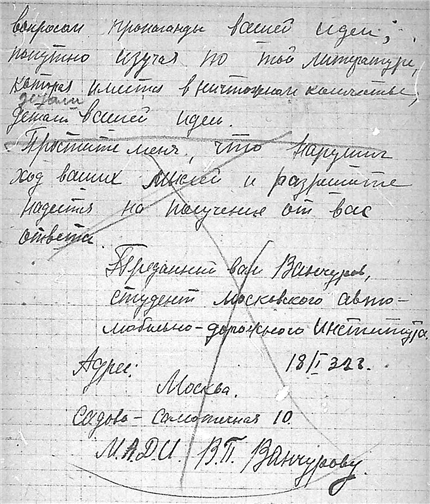 вопросам пропаганды вашей идеи;
попутно изучая по той литературе,
которая имеется в ничтожном количестве,
детали
детали вашей идеи.
Простите меня, что нарушил
ход ваших мыслей и разрешите
надеятся на получение от вас
ответа.
Преданный вам Ванчуров,
студент Московского авто-
мобильно-дорожного Института.
18/I 32 г.
Адрес:
Москва.
Садово-Самотечная 10.
М.А.Д.И. В.П. Ванчурову.